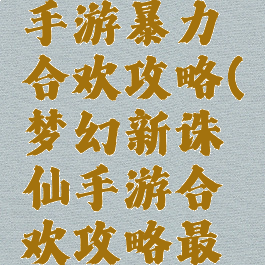 手游暴力
合欢攻略(
梦幻新诛
仙手游合
欢攻略最